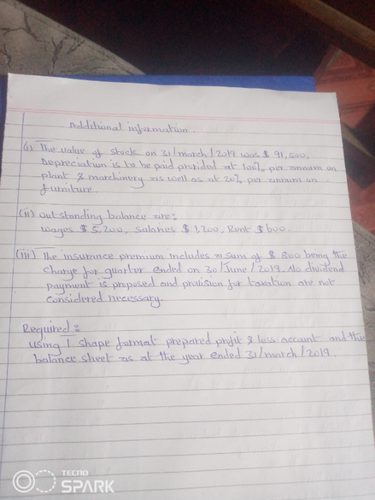 Additional information.
(i) The value of stock on 31/march/2019 was $ 91,500.
Depreciation is to be paid protided at 10%. per annum on
plant & machinery as well as at 20% per annum on
furniture.
(ii) outstanding balance are:
wages $ 5,200, salaries $ 1,200, Rent $ 600.
(iii) The insurance premium includes a sum of $ 800 being the
charge for quarter ended on 30/June/2019. No dividend
payment is proposed and provision for taxation are not
considered necessary.
Required:
Using I shape format prepared profit & loss account and the
balance sheet as at the year ended 31/march/2019.
TECNO
SPARK